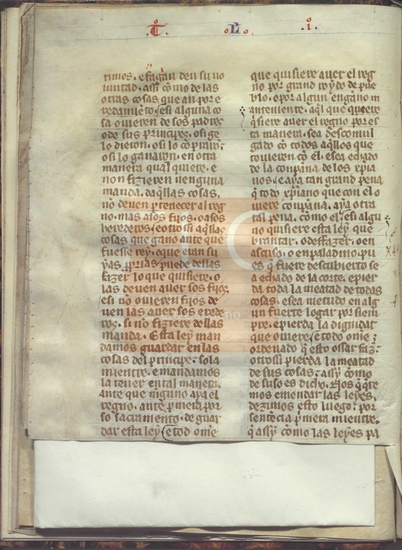 T L i
rimos. e fagan den su uo
luntad. assi como de las
otras cosas que an por e
redamiento. e si alguna co
sa ouieren de sos padres
o de sus principes. o si ge
lo dieron. o si lo compraron.
o si lo ganaron. en otra
manera qual quiere. e
non fizieren ninguna
manda. daquellas cosas.
no deuen pertenecer al reg
no. mas a sos fijos. o a sos
herederos. e otrosi aquellas
cosas que gano ante que
fuesse rey. o que eran su
yas proprias puede dellas
fazer lo que quisiere. o
las deuen auer sos fijos.
e si no ouieren fijos de
uen las auer sos erede
ros. si no fiziere dellas
manda. Esta ley man
damos guardar en las
cosas del principe. sola
mientre. e mandamos
la tener en tal manera
ante que ninguno aya el
regno. ante prometa por
so sacramiento. de guar
dar esta ley. e tod omne
que quisiere auer el reg
no por grand roydo de pue
blo. o por algun enganno
auenniente. aquel que
quisiere auer el regno por es
ta manera. sea descomul
gado con todos aquellos que
touieren con el. e sea echado
de la compannia de los cristia
nos. e aya tan grand pena
que todo cristiano que con el o
uiere compannia. aya otra
tal pena. como el. e si algu
no quisiere esta ley que
brantar. o desfazer. o en
ascuso. o en paladino. pu
es que fuere descubierto se
a echado de la corte. e pier
da toda la meatad de todas
cosas. e sea metudo en al
gun fuerte logar por siem
pre. e pierda la dignidat
que ouiere. e todo omne
ordenado que esto osar fazer.
otrossi pierda la meatad
de sus cosas. assy como
de suso es dicho. Et los que que
mos emendar las leyes.
dezimos esto luego. por
sentencia primera mientre.
que assy como las leyes pa